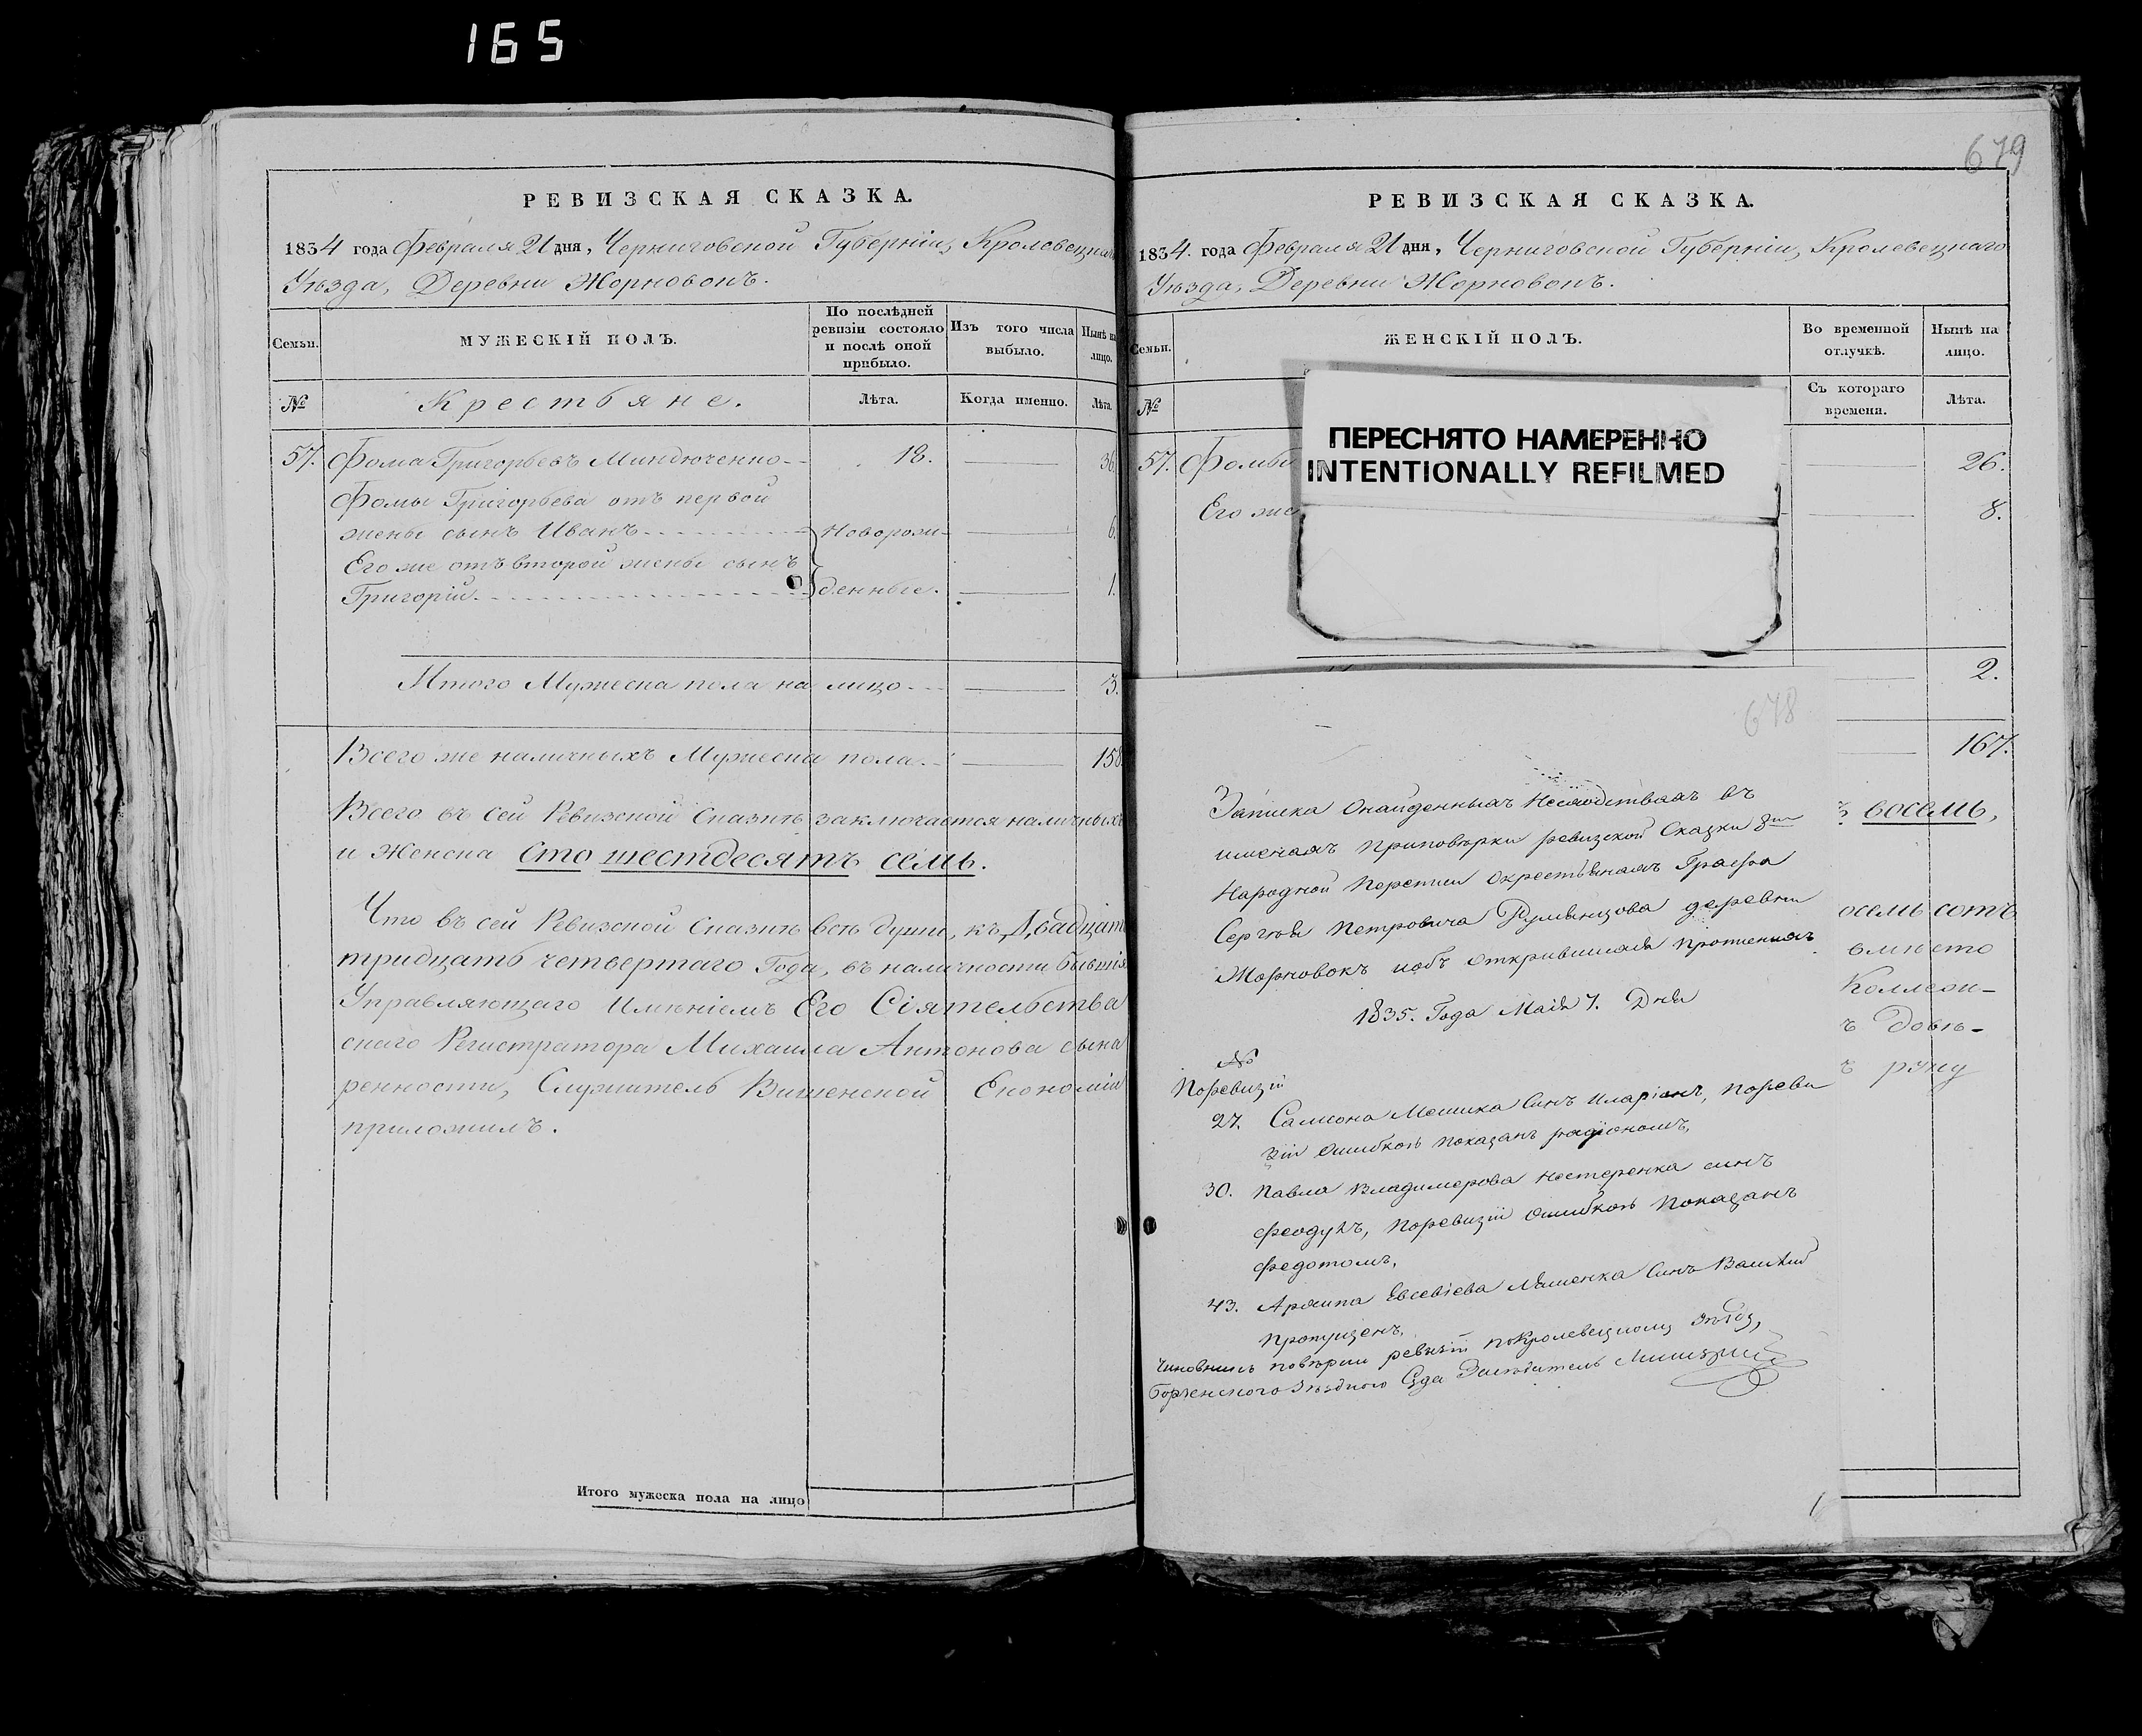 165
РЕВИЗСКАЯ СКАЗКА.
1834 года Февраля 21 дня, Черниговской Губерніи, Кролевецкаго
Уѣзда, Деревни Жорновокъ.
Семьи.
МУЖЕСКІЙ ПОЛЪ.
По послѣдней ревизіи состояло и послѣ оной прибыло.
Изъ того числа выбыло.
Нынѣ на лицо.
№
Крестьяне.
Лѣта.
Когда именно.
Лѣта.
57. Фома Григорьевъ Миндюченко 18. 36.
Фомы Григорьева отъ первой
жены сынъ Иванъ Новорож- 6.
Его же отъ второй жены сынъ
Григорій денные. 1.
Итого Мужеска пола на лицо 3.
Всего же наличныхъ Мужеска пола 158
Всего въ сей Ревизской Сказкѣ заключается наличныхъ
и Женска сто шестдесятъ семь.
Что въ сей Ревизской Сказкѣ всѣ души, къ Двадцать
тридцать четвертаго Года, въ наличности бывшія
Управляющаго Имѣніемъ Его Сіятельства
скаго Регистратора Михаила Антонова сына
ренности, Служитель Вишенской Економіи
приложилъ.
Итого мужеска пола на лицо
679
РЕВИЗСКАЯ СКАЗКА.
1834. года Февраля 21 дня, Черниговской Губерніи, Кролевецкаго
Уѣзда, Деревни Жорновокъ.
Семьи.
ЖЕНСКІЙ ПОЛЪ.
Во временной отлучкѣ.
Нынѣ на лицо.
№
Съ котораго времени.
Лѣта.
ПЕРЕСНЯТО НАМЕРЕННО
INTENTIONALLY REFILMED
57. Фомы 26.
Его же 8.
2.
167.
ъ восемь,
осемь сотъ
вмѣсто
Коллеги-
ъ довѣ-
ъ руку
678
Записка Онайденныхъ въ
именахъ Приповѣрки ревизской Сказки 8ой
Народной Переписи Окрестьянахъ Графа
Сергѣя Петровича Румянцова деревни
Жорновокъ иобъ открившихся
1835. Года Маія 7. Дня
№
Поревизіи
27. Самсона Мошика Синъ Иларіонъ, Пореви
зіи Ошибкою Показанъ
30. Павла Владимерова Нестеренка синъ
феодулъ, Поревизіи Ошибкою Показанъ
федотомъ,
43. Архипа Евсевіева Синъ
Пропущенъ,
Чиновникъ повѣрки ревизіи покролевецкому
Суда Засѣдатель